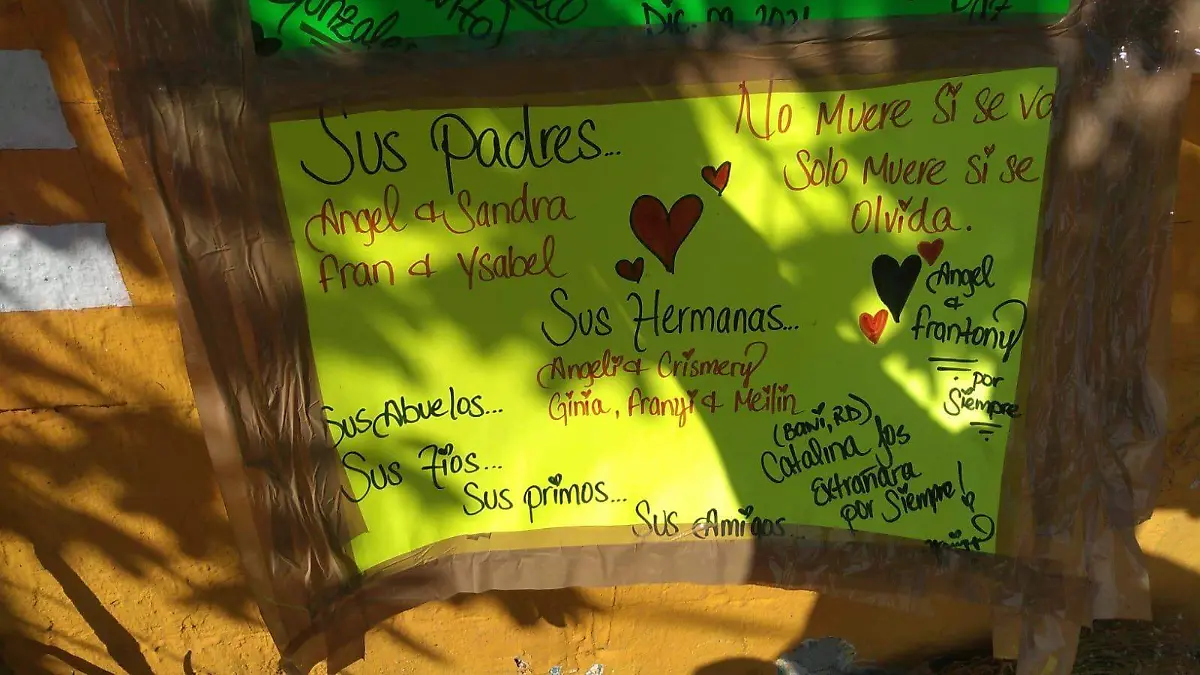 Gonzalez
Dic. 09, 2021
Paz
Sus Padres...
Angel & Sandra
Fran & Ysabel
No Muere Si se va
Solo Muere si se
Olvida.
Sus Hermanas...
Angeli & Crismery
Ginia, Franyi & Meilin
Angel
&
Frantony
por
Siempre
Sus Abuelos...
Sus Tios...
Sus primos...
Sus Amigos...
(Bani, RD)
Catalina los
Extrañara
por Siempre!